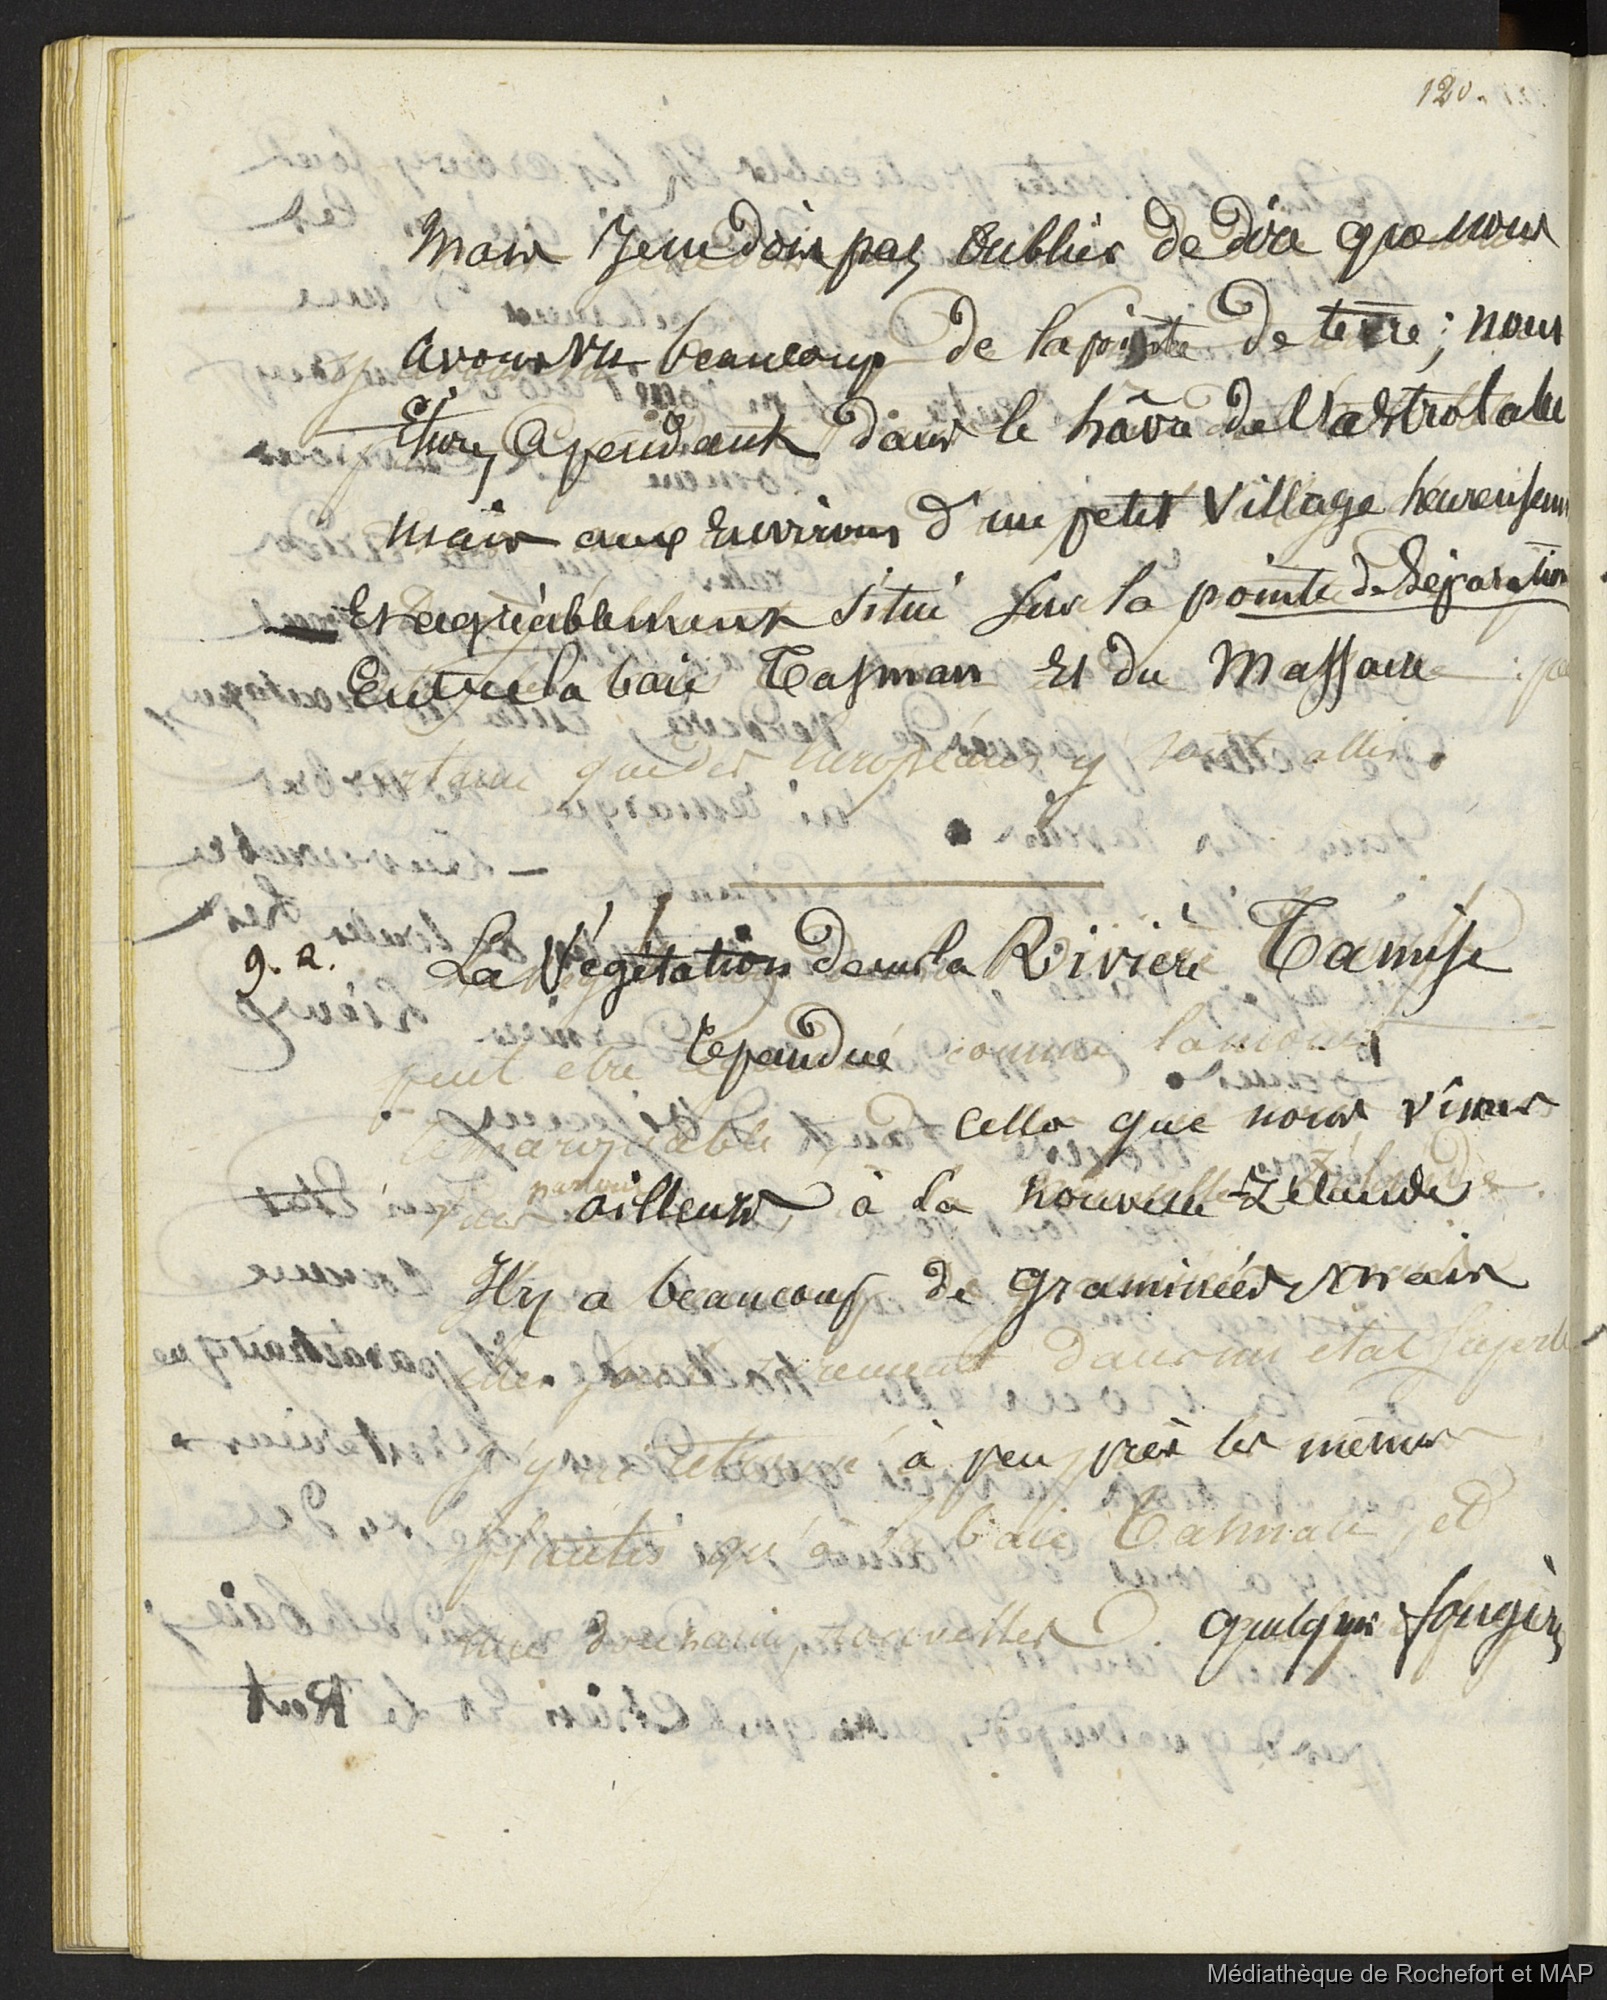 120.
Mais Je ne dois pas oublier de dire que nous
avons vu beaucoup de la pointe de terre ; nous
étions cependant dans le hâvre de l'astrolabe
mais aux Environs d'un petit village heureusem
Et agréablement situé sur la pointe de Séparation
Entre la baie Tasman Et du Massacre
que des Européens y sont allés.
9. a. La Végétation dans la Rivière Tamise
peut etre Répandue comme la moins
remarquable, celle que nous vimes
partout ailleurs, à la nouvelle Zélande
Il y a beaucoup de graminées mais
dans un état superbe
j'y ai retrouvé à peu près les mêmes
plantes qu'à la baie Tasman, et
une douzaine, nouvelles. quelques fougères
Médiathèque de Rochefort et MAP